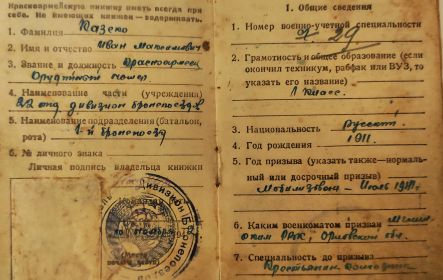 Красноармейскую книжку иметь всегда при
себе. Не имеющих книжек — задерживать.
1. Фамилия Казеко
2. Имя и отчество Иван Максимович
3. Звание и должность Красноармеец
Орудийный номер
4. Наименование части (учреждения)
22 отд дивизион бронепоездов
5. Наименование подразделения (батальон,
рота) 1-й бронепоезд
6. № личного знака
Личная подпись владельца книжки
Место
I. Общие сведения
1. Номер военно-учетной специальности
29
2. Грамотность и общее образование (если
окончил техникум, рабфак или ВУЗ, то
указать его название)
1 класс.
3. Национальность русский
4. Год рождения 1911.
5. Год призыва (указать также — нормаль-
ный или досрочный призыв)
Мобилизован - Июль 1941 г.
6. Каким военкоматом призван
РВК, Орловской обл.
7. Специальность до призыва